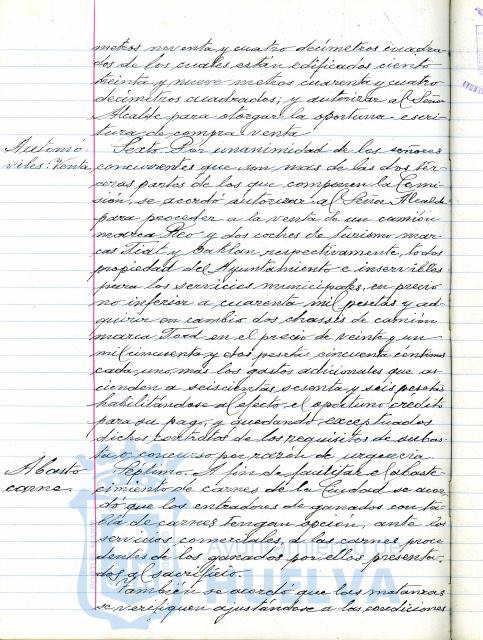 metros noventa y cuatro decímetros cuadra-
dos de los cuales están edificados ciento
treinta y nueve metros cuarenta y cuatro
decímetros cuadrados; y autorizar al Señor
Alcalde para otorgar la oportuna escri-
tura de compra venta
Automó
viles. Venta
Sexto. Por unanimidad de los señores
concurrentes que son mas de las dos ter-
ceras partes de los que componen la Comi-
sión, se acordó autorizar al Señor Alcalde
para proceder a la venta de un camión
marca Reo y dos coches de turismo mar-
cas Fiat y Oaklan respectivamente, todos
propiedad del Ayuntamiento e inservibles
para los servicios municipales, en precio
no inferior a cuarenta mil pesetas y ad-
quirir en cambio dos chassis de camión
marca Ford en el precio de veinte y un
mil cincuenta y dos pesetas cincuenta centimos
cada uno mas los gastos adicionales que as-
cienden a seiscientas sesenta y seis pesetas
habilitándose al efecto el oportuno crédito
para su pago, y quedando exceptuados
dichos contratos de los requisitos de subas-
ta o concurso por razón de urgencia
Abasto
carne.
Séptimo. A fin de facilitar el abaste-
cimiento de carnes de la Ciudad se acor-
dó que los entradores de ganados con ta-
bla de carnes tengan opción, ante los
servicios comerciales, a las carnes proce-
dentes de los ganados por ellos presenta-
dos al sacrificio.
También se acordó que las matanzas
se verifiquen ajustándose a las condiciones
Ayuntamiento de
HUELVA